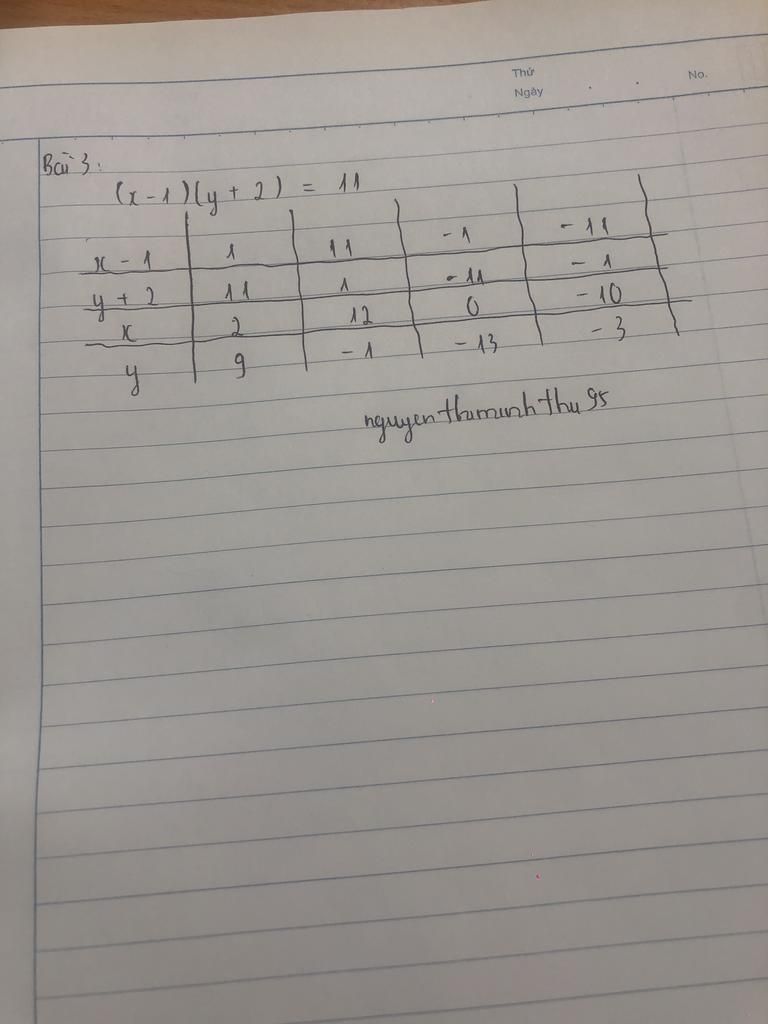 Thứ
Ngày
No.
Bài 3:
(x - 1)(y + 2) = 11
x - 1 1 11 -1 -11
y + 2 11 1 -11 -1
x 2 12 0 -10
y 9 -1 -13 -3
nguyenthiminhthu95